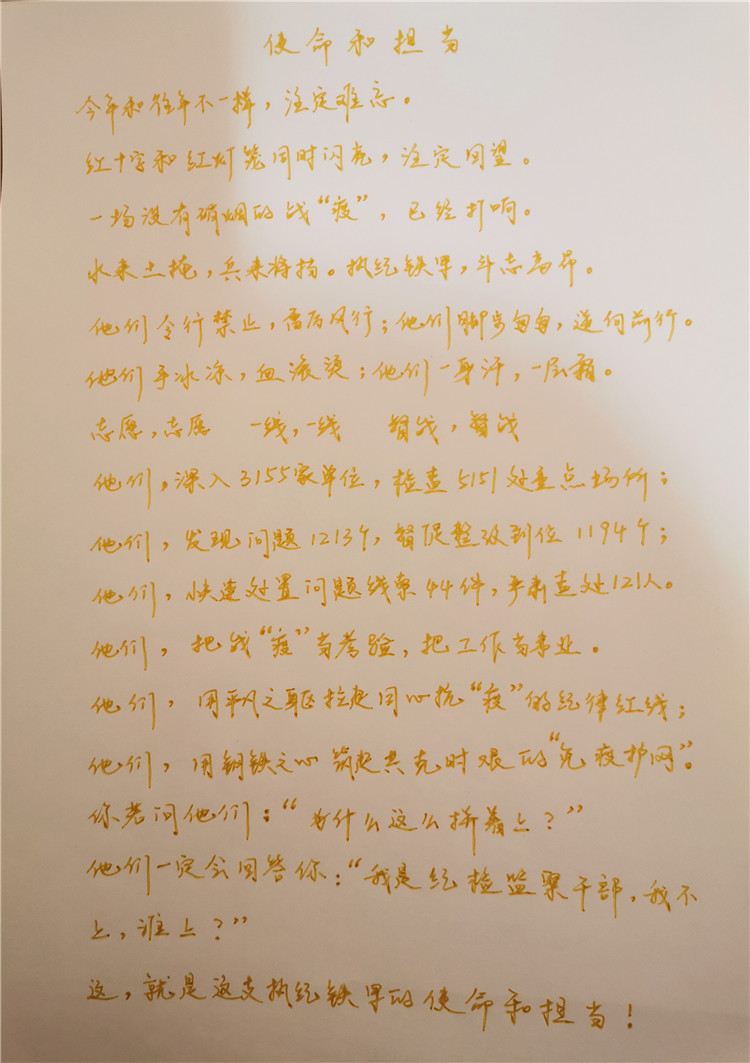 使命和担当
今年和往年不一样，注定难忘。
红十字和红灯笼同时闪亮，注定回望。
一场没有硝烟的战“疫”，已经打响。
水来土掩，兵来将挡。执纪铁军，斗志高昂。
他们令行禁止，雷厉风行；他们脚步匆匆，逆向前行。
他们手冰冻，血滚烫；他们一身汗，一层霜。
志愿，志愿 一线，一线 督战，督战
他们，深入3155家单位，检查5151处重点场所；
他们，发现问题1213个，督促整改到位1194个；
他们，快速处置问题线索44件，严肃查处121人。
他们，把战“疫”当考验，把工作当事业。
他们，用平凡之躯拉起同心抗“疫”的纪律红线；
他们，用钢铁之心筑起共克时艰的“免疫护网”。
你若问他们：“为什么这么拼着上？”
他们一定会回答你：“我是纪检监察干部，我不
上，谁上？”
这，就是这支执纪铁军的使命和担当！